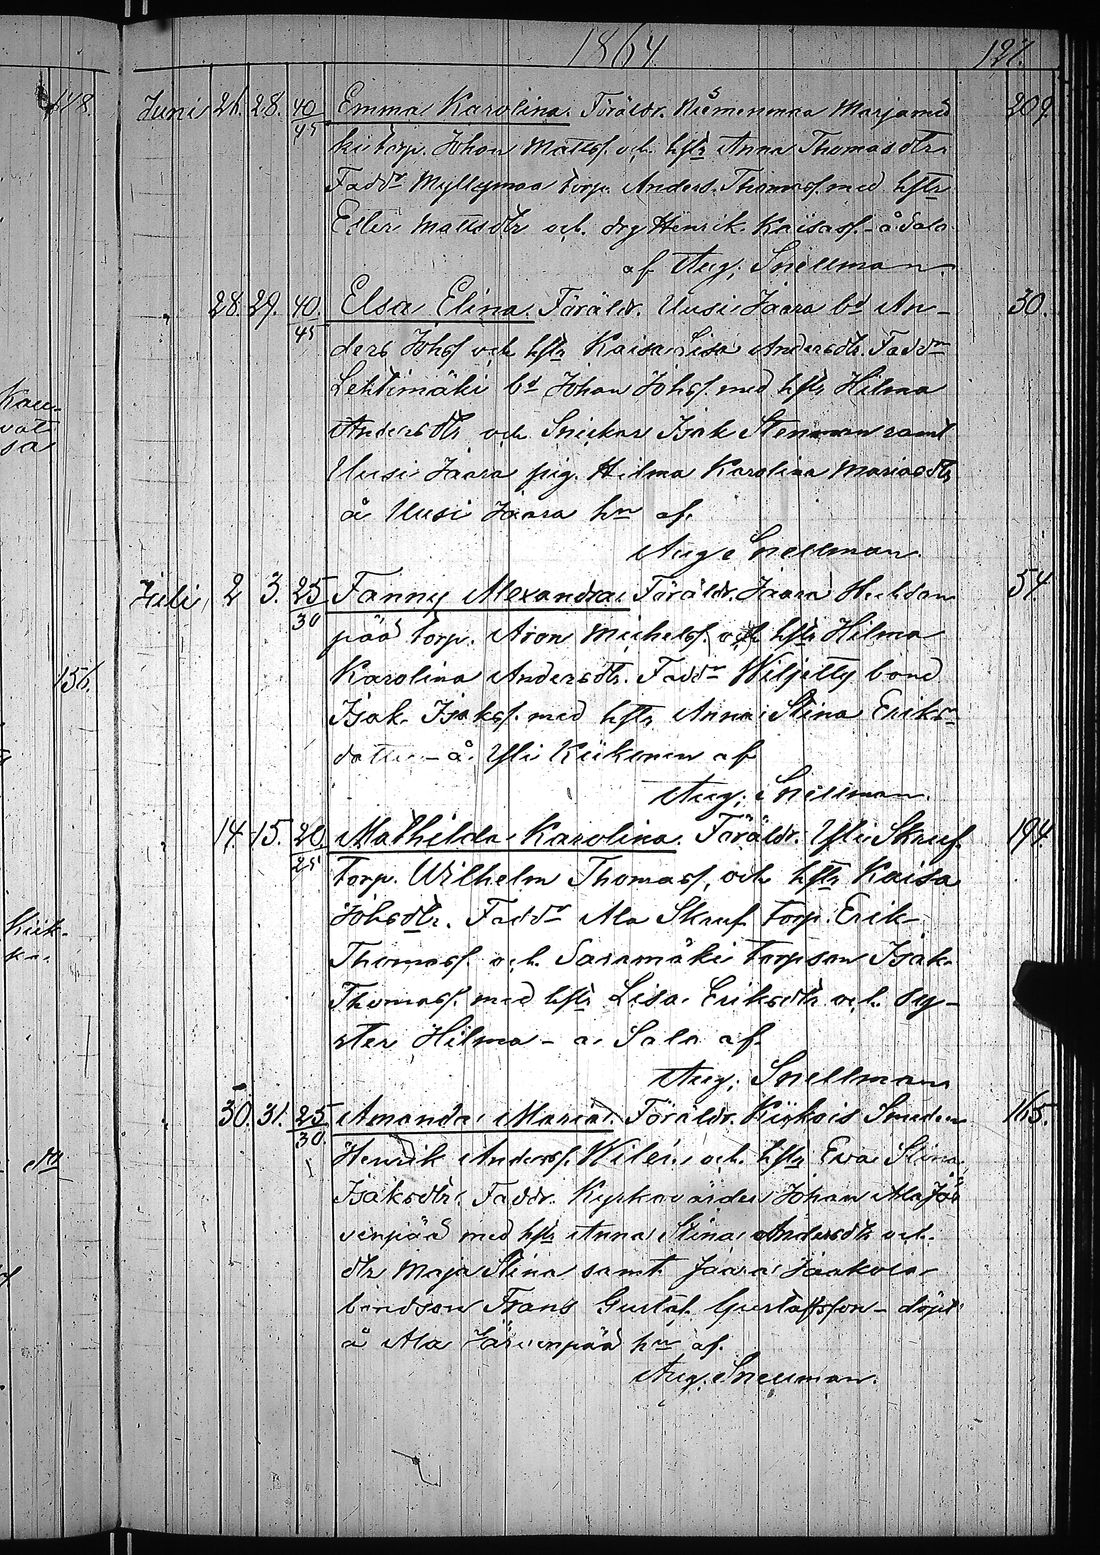 1864 127.
118. Juni 26. 28. 40/45 Emma Karolina. Föräldr. Marjamä
ki torp. Johan Mattsf. och hstr Anna Thomasdtr.
Faddr Myllymaa torp. Anders Thomasf. med hstr
Mattsdtr och drg Henrik Kaisasf. - å Sala
af Aug. Snellman. 209.
" 28. 29. 40/45 Elsa Elina. Föräldr. Uusi Jaara bd An- 30.
ders Johsf och hstr Kaisa Lisa Andersdtr. Faddr
Lehtimäki bd Johan Johsf. med hstr Hilma
Andersdtr och Snickar Isak Stenman samt
Uusi Jaara pig. Hilma Karolina Mariasdtr
å Uusi Jaara hn af.
Aug. Snellman.
Juli 2 3. 25/30 Fanny Alexandra. Föräldr. Jaara Huhdan 54.
pää torp. Aron Michelsf. och hstr Hilma
Karolina Andersdtr. Faddr Wiljetty bond
Isak Isaksf. med hstr Anna Stina Eriks
dotter - å Yli Kiikonen af
Aug. Snellman.
14. 15. 20/25 Mathilda Karolina. Föräldr. Yli Skruf. 194.
torp. Wilhelm Thomasf, och hstr Kaisa
Johsdtr. Faddr Ala Skruf torp. Erik
Thomasf. och Saramäki torpson Isak
Thomasf. med hstr Lisa Eriksdtr och sy-
ster Hilma - å Sala af
Aug. Snellman
" 30. 31. 25/30 Amanda Maria. Föräldr. Kiikois Smeden 165.
Henrik Andersf. Wilén och hstr Eva Stina
Isaksdtr. Faddr. Kyrkovärden Johan Ala Jär
venpää med hstr Anna Stina Andersdtr och
dtr Maja Stina samt Jaara Jaakola
bondson Frans Gustaf Gustafsson - döpt
å Ala Järvenpää hn af.
Aug. Snellman.
156.